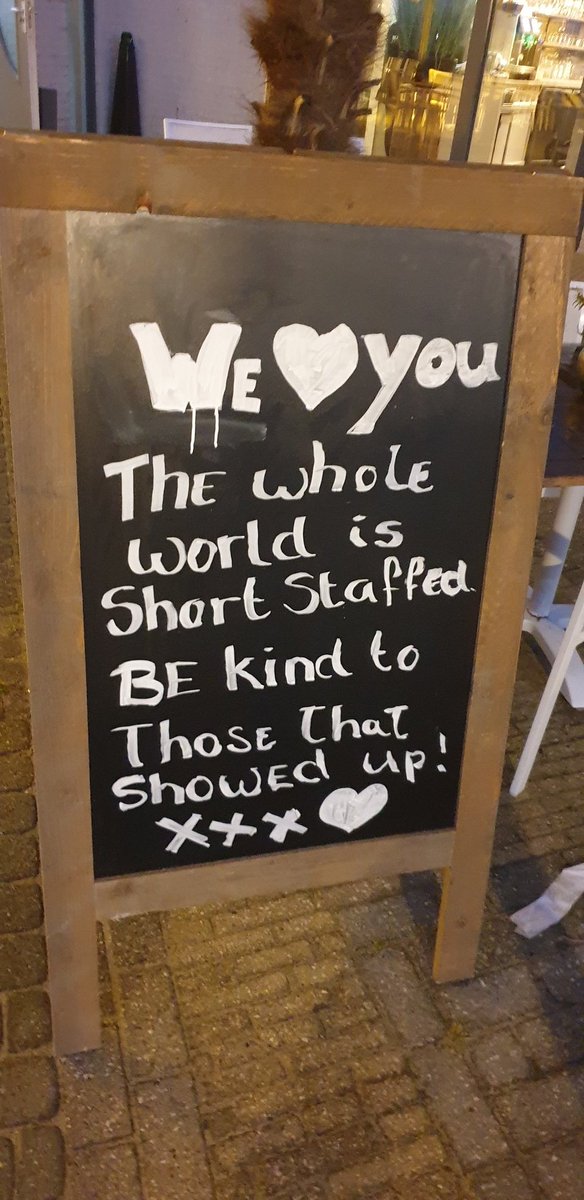 WE ♥ you
THE whole
world is
Short Staffed.
BE kind to
THOSE That
SHOWED up!
xxx ♥